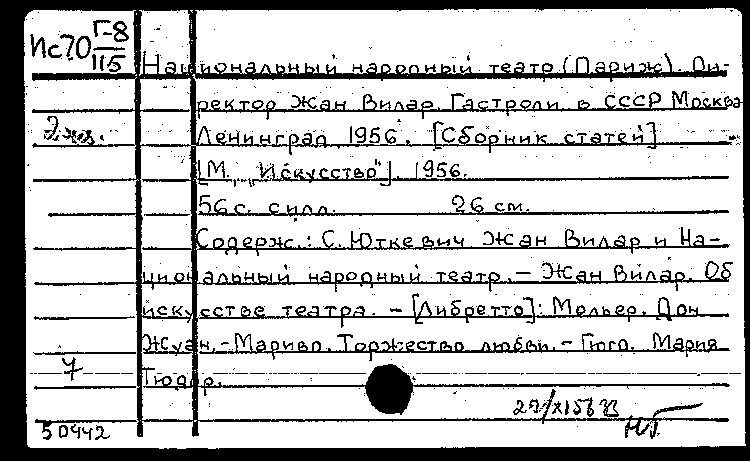 Ис70 Г-8
115
Национальный народный театр (Париж). Ди-
ректор Жан Вилар. Гастроли в СССР Москва
2 экз.
Ленинград 1956. [Сборник статей]
[М., "Искусство"]. 1956.
56 с. с илл. 26 см.
Содерж.: С. Юткевич Жан Вилар и На-
циональный народный театр. – Жан Вилар. Об
искусстве театра. – [Либретто]: Мольер. Дон
Жуан. – Мариво. Торжество любви. – Гюго. Мария
Тюдор.
50442